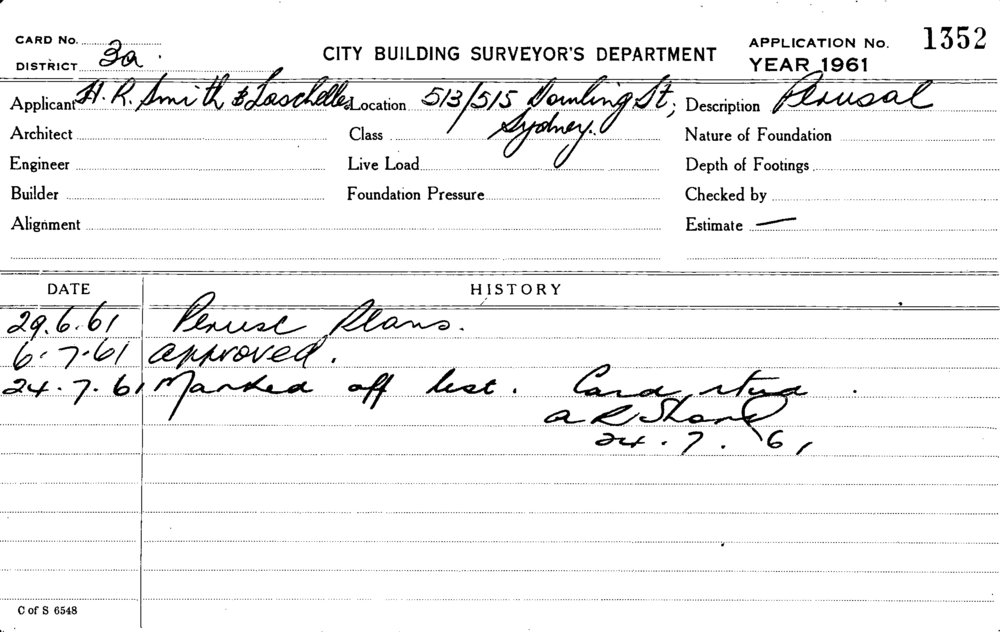 CARD No.
DISTRICT 3a
CITY BUILDING SURVEYOR'S DEPARTMENT
APPLICATION No. 1352
YEAR 1961
Applicant H. R. Smith & Laschelles Location 513/515 Dowling St, Sydney. Description Perusal
Architect Class Nature of Foundation
Engineer Live Load Depth of Footings
Builder Foundation Pressure Checked by
Alignment Estimate —
DATE HISTORY
29.6.61 Peruse Plans.
6.7.61 approved.
24.7.61 Marked off list. Card
24.7.61
C of S 6548